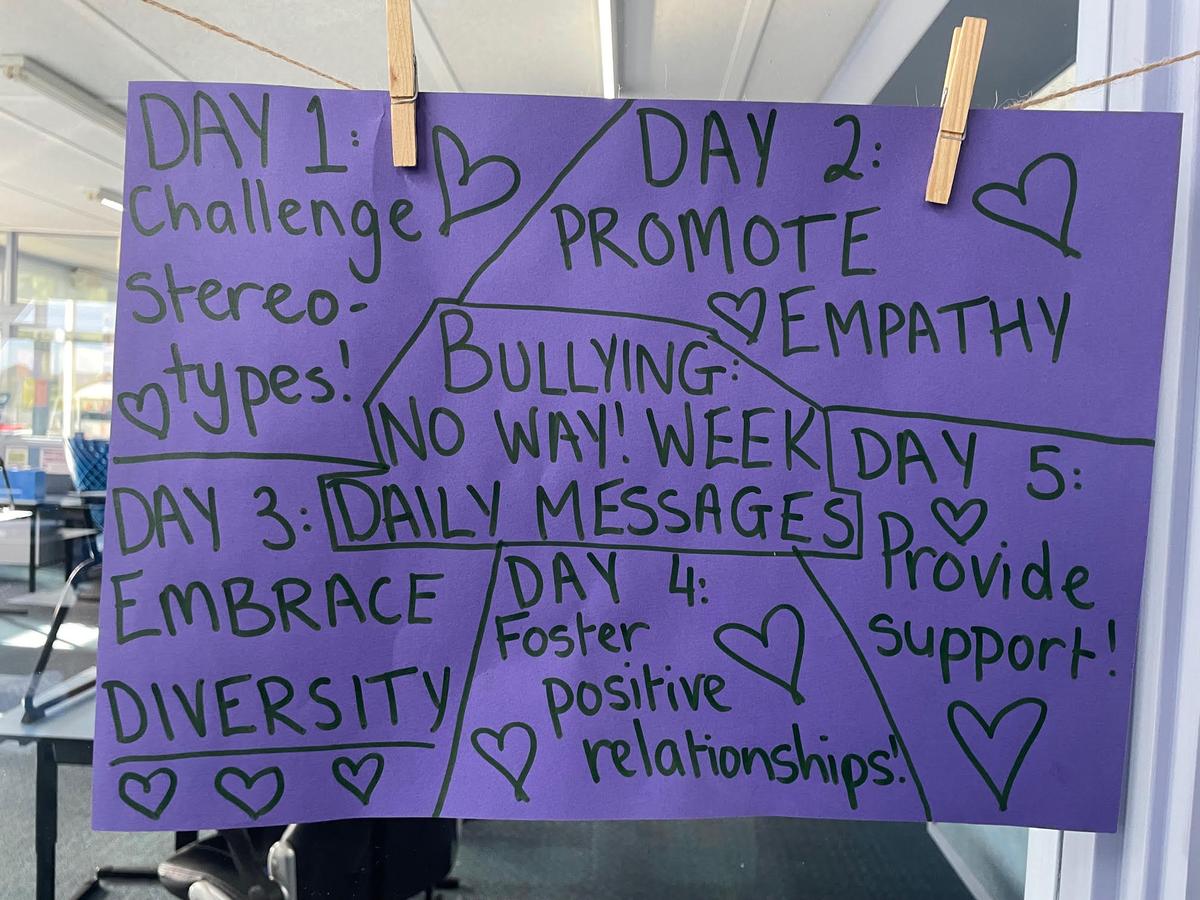 DAY 1:
Challenge
stereo-
types!
DAY 2:
PROMOTE
EMPATHY
BULLYING:
NO WAY! WEEK
DAILY MESSAGES
DAY 3:
EMBRACE
DIVERSITY
DAY 4:
Foster
positive
relationships!
DAY 5:
Provide
support!